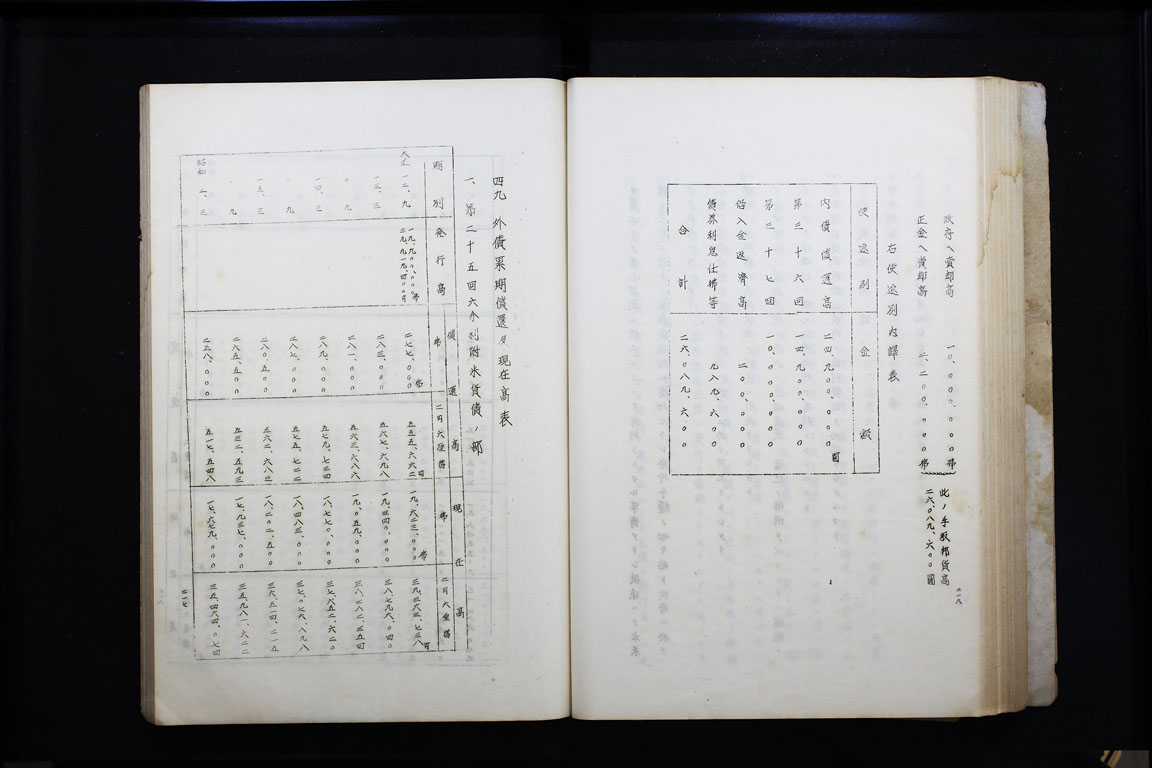 二一八
政府ヘ賣却高 一〇、〇〇〇、〇〇〇弗
正金ヘ賣却高 三、二〇〇、〇〇〇弗
此ノ手取邦貨高
二六、〇八九、六〇〇圓
右使途別内譯表
使途別 金額
内債償還高 二四、九〇〇、〇〇〇圓
第三十六回 一四、九〇〇、〇〇〇
第三十七回 一〇、〇〇〇、〇〇〇
借入金返濟高 二〇〇、〇〇〇
債券利息仕拂等 九八九、六〇〇
合計 二六、〇八九、六〇〇
四九 外債累期償還及現在高表
一、第二十五回六分利附米貨債ノ部
期別 発行高 償還高 現在高
弗 二円六厘替 弗 二円六厘替
大正一二、九 一九、九〇〇、〇〇〇弗 三九、九一九、四〇〇円 二七七、〇〇〇弗 五五五、六六二円 一九、六二三、〇〇〇弗 三九、三六三、七三八円
一三、三 二八三、〇〇〇 五六七、六九八 一九、三四〇、〇〇〇 三八、七九六、〇四〇
〃 九 二八一、〇〇〇 五六三、六八六 一九、〇五九、〇〇〇 三八、二三二、三五四
一四、三 二八九、〇〇〇 五七九、七三四 一八、七七〇、〇〇〇 三七、六五二、六二〇
〃 九 二八七、〇〇〇 五七五、七二二 一八、四八三、〇〇〇 三七、〇七六、八九八
一五、三 二八〇、五〇〇 五六二、六八三 一八、二〇二、五〇〇 三六、五一四、二一五
〃 九 二六五、五〇〇 五三二、五九三 一七、九三七、〇〇〇 三五、九八一、六二二
昭和 二、三 二五八、〇〇〇 五一七、五四八 一七、六七九、〇〇〇 三五、四六四、〇七四
二一七